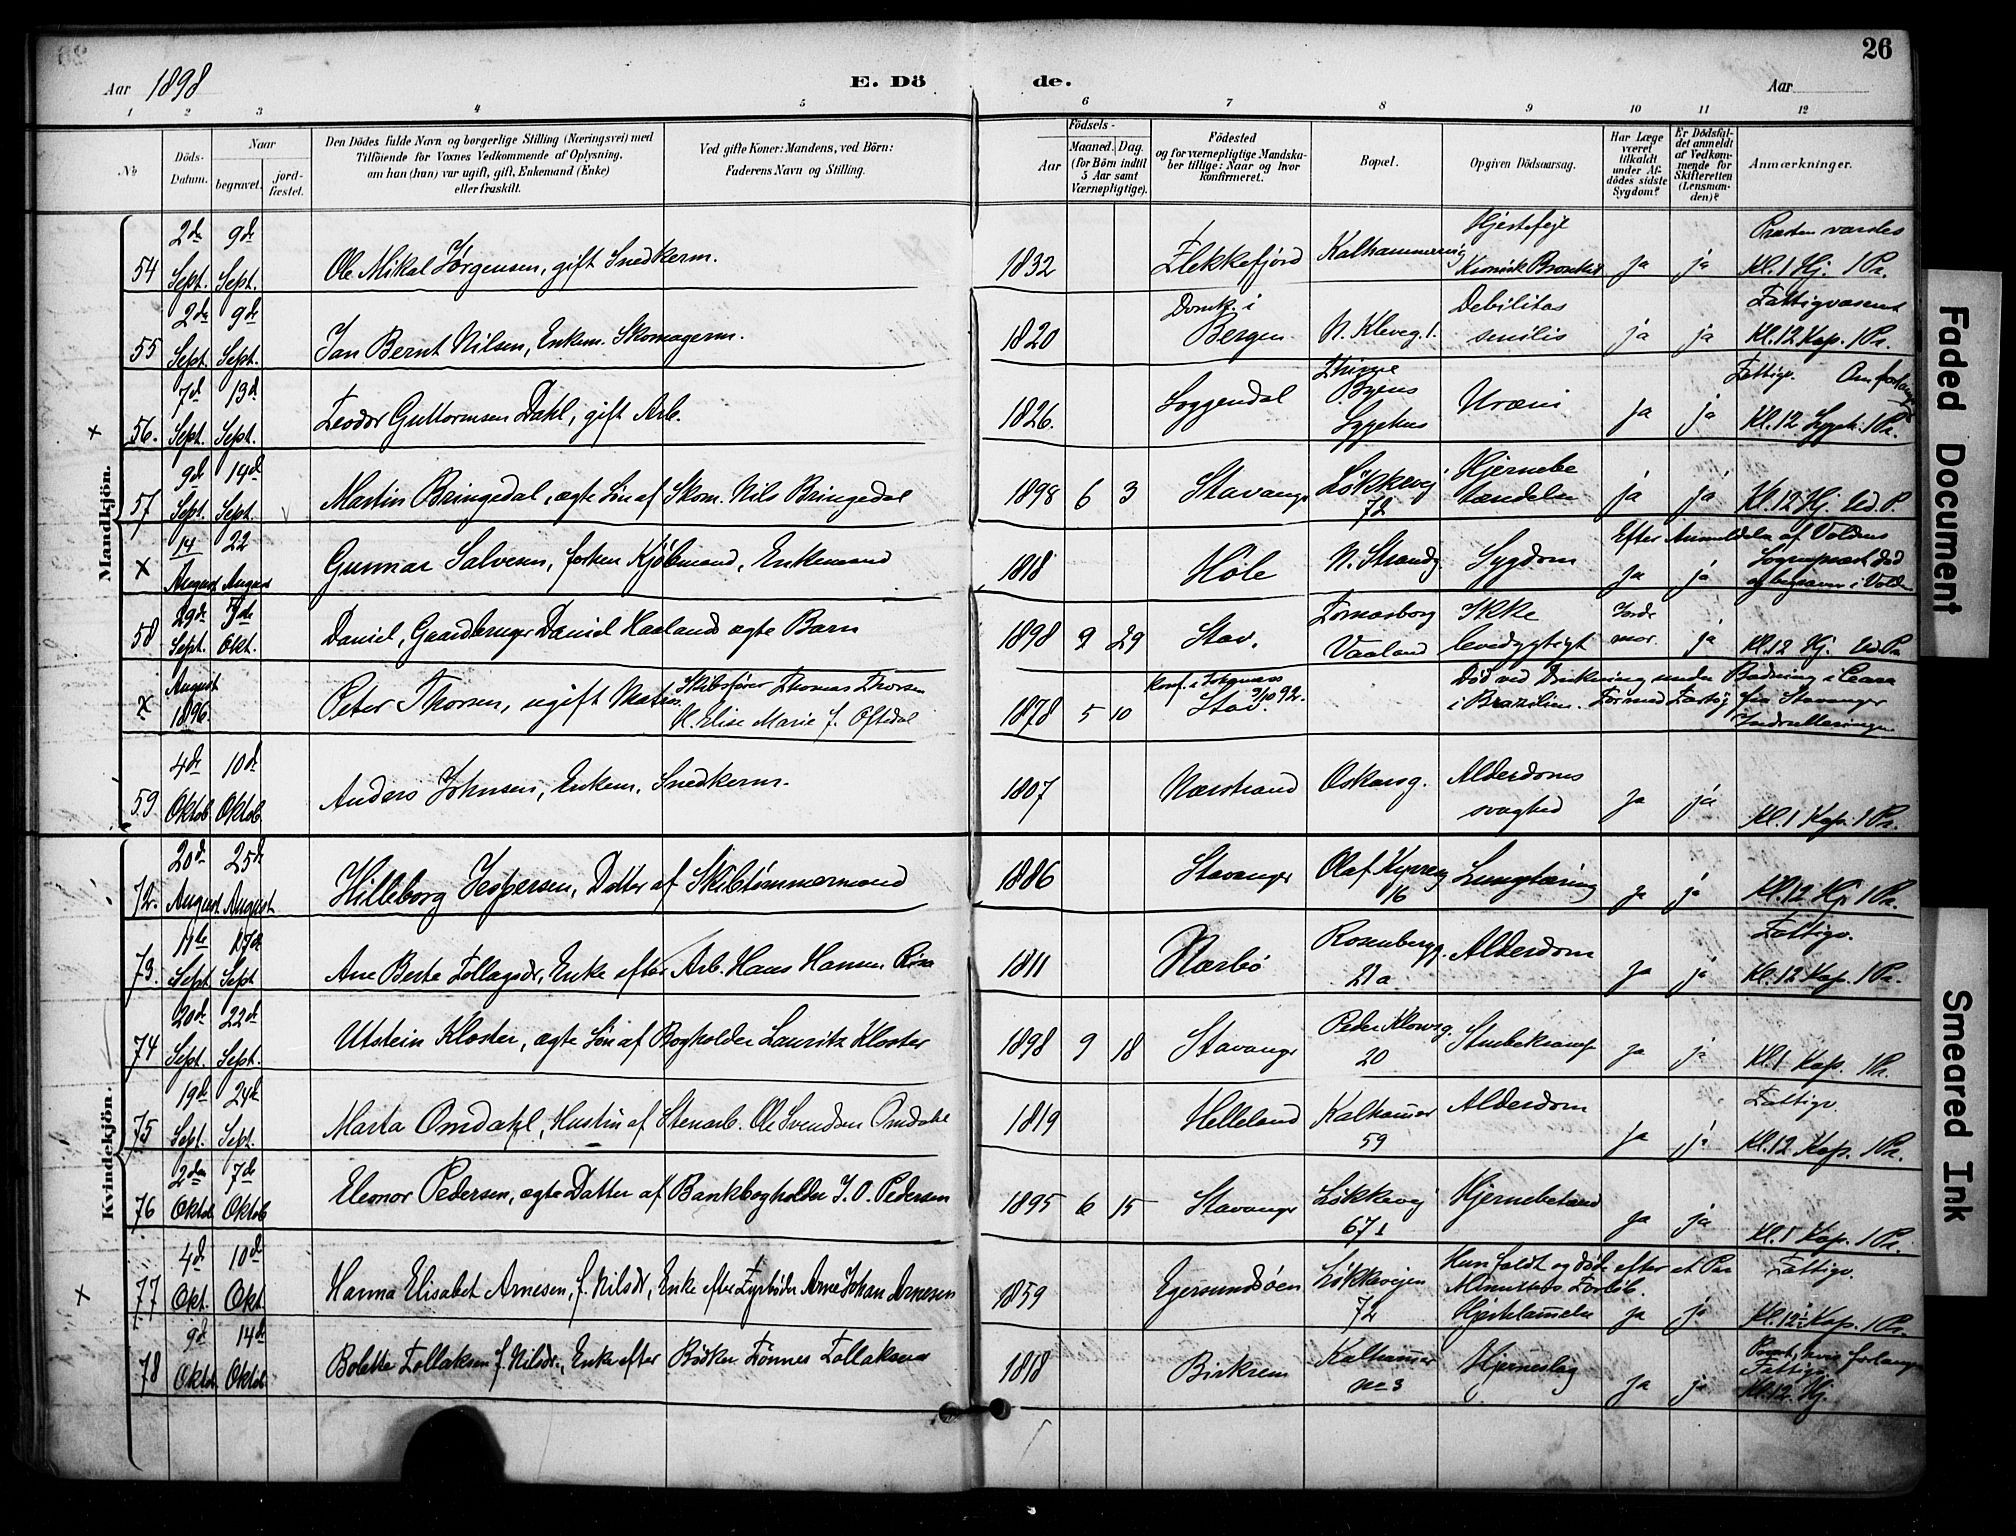 26
Aar 1898
E. Döde.
Aar
1 2 3 4 5 6 7 8 9 10 11 12
No
Döds-Datum.
Naar begravet. jordfæstet.
Den Dödes fulde Navn og borgerlige Stilling (Næringsvei) med Tilföiende for Voxnes Vedkommende af Oplysning, om han (hun) var ugift, gift, Enkemand (Enke) eller fraskilt.
Ved gifte Koner: Mandens, ved Börn: Faderens Navn og Stilling.
Födsels-
Aar Maaned. Dag. (for Börn indtil 5 Aar samt Værnepligtige).
Födested og for værnepligtige Mandskaber tillige: Naar og hvor konfirmeret.
Bopæl.
Opgiven Dödsaarsag.
Har Læge været tilkaldt under Afdödes sidste Sygdom?
Er Dödsfaldet anmeldt af Vedkommende for Skifteretten (Lensmanden)?
Anmærkninger.
Mandkjön.
54 2de Sept. 9de Sept. Ole Mikal Jørgensen, gift Snedkerm. 1832 Flekkefjord Kalhammerveig Hjertefejl Kronisk ja ja Kl. 1 Hj. 1 Pr.
55 2de Sept. 9de Sept. Jan Bernt Nilsen, Enkem. Skomagerm. 1820 Domk. i Bergen N. Kleveg. 1. Debilitas senilis ja ja Fattigvæsenet Kl. 12 Kap. 1 Pr.
x 56. 7d Sept. 13d Sept. Teodor Guttormsen Dahl, gift Arb. 1826. Soggendal Byens Sygehus Uræmi ja ja Fattigv. Kl. 12 Sygeh. 1 Pr.
57 9d Sept. 14d Sept. Martin Bringedal, ægte Søn af Skom. Nils Bringedal 1898 6 3 Stavanger Løkkevej 72 Hjernebetændelse ja ja Kl. 12 Hj. Ud. P.
x 14 August 22 August Gunnar Salvesen, forhen Kjøbmand, Enkemand 1818 Høle N. Strandg Sygdom ja ja Efter Anmeldelse af Voldens Sogneprest Død og begraven i Volden
58 29de Sept. 7de Okt. Daniel, Gaardbruger Daniel Haalands ægte Barn 1898 9 29 Stav. Tornasborg Vaaland Ikke levedygtigt Jordmor. ja Kl. 12 Hj. Ud. Pr
x August 1896. Peter Thorsen, ugift Matros. Skibsfører Thomas Thorsen H. Elise Marie f. Oftedal 1878 5 10 Konf. i Stav. 3/10 92. Død ved Drukning under Badning i Ceara i Brazilien. For med Fartøj fra Stavanger Indrulleringen
59 4de Oktob 10de Oktob. Anders Johnsen, Enkem. Snedkerm. 1807 Nærstrand Oskarsg. Alderdomssvaghed ja ja Kl. 1 Kap. 1 Pr.
Kvindekjön.
72. 20de August 25de August Hilleborg Jespersen, Datter af Skibtømmermand 1886 Stavanger Olaf Kyrresg 16 Lungtæring ja ja Kl. 12 Hj. 1 Pr.
73. 11te Sept 17de Sept Ane Berte Tollagsdr, Enke efter Arb. Hans Hansen 1811 Nærbø Rosenbergg. 21a Alderdom ja ja Fattigv. Kl. 12 Kap. 1 Pr.
74 20de Sept. 22de Sept. Utstein Kloster, ægte Søn af Bogholder Lauritz Kloster 1898 9 18 Stavanger Peder Klowsg. 20 Strubekrampe ja ja Kl. 1 Kap. 1 Pr.
75 19de Sept. 24de Sept. Marta Omdahl, Hustru af Stenarb. Ole Svendsen Omdahl 1819 Helleland Kalhammer 59 Alderdom ja ja Fattigv. Kl. 12 Kap. 1 Pr.
76 2den Oktob 7de Oktob Eleonor Pedersen, ægte Datter af Bankbogholder J. O. Pedersen 1895 6 15 Stavanger Løkkevej 67 I Hjernebetænd ja ja Kl. 1 Kap. 1 Pr.
x 77 4de Okt. 10de Okt Hanna Elisabet Arnesen, f. Nilsdr, Enke efter Fyrbøder Arne Johan Arnesen 1859 Egersundsøen Løkkevejen 72 Hun faldt og døde efter et Par Minutters Forløb. Hjertelammelse ja ja Fattigv. Kl. 12 Kap. 1 Pr.
78 9d Oktob 14de Oktob Bolette Tollaksen f. Nilsdr., Enke efter Bødker Tønnes Tollaksen 1818 Birkrem Kalhammer No 3 Hjerneslag ja ja Fattigv. Kl. 12. Hj.
Faded Document
Smeared Ink